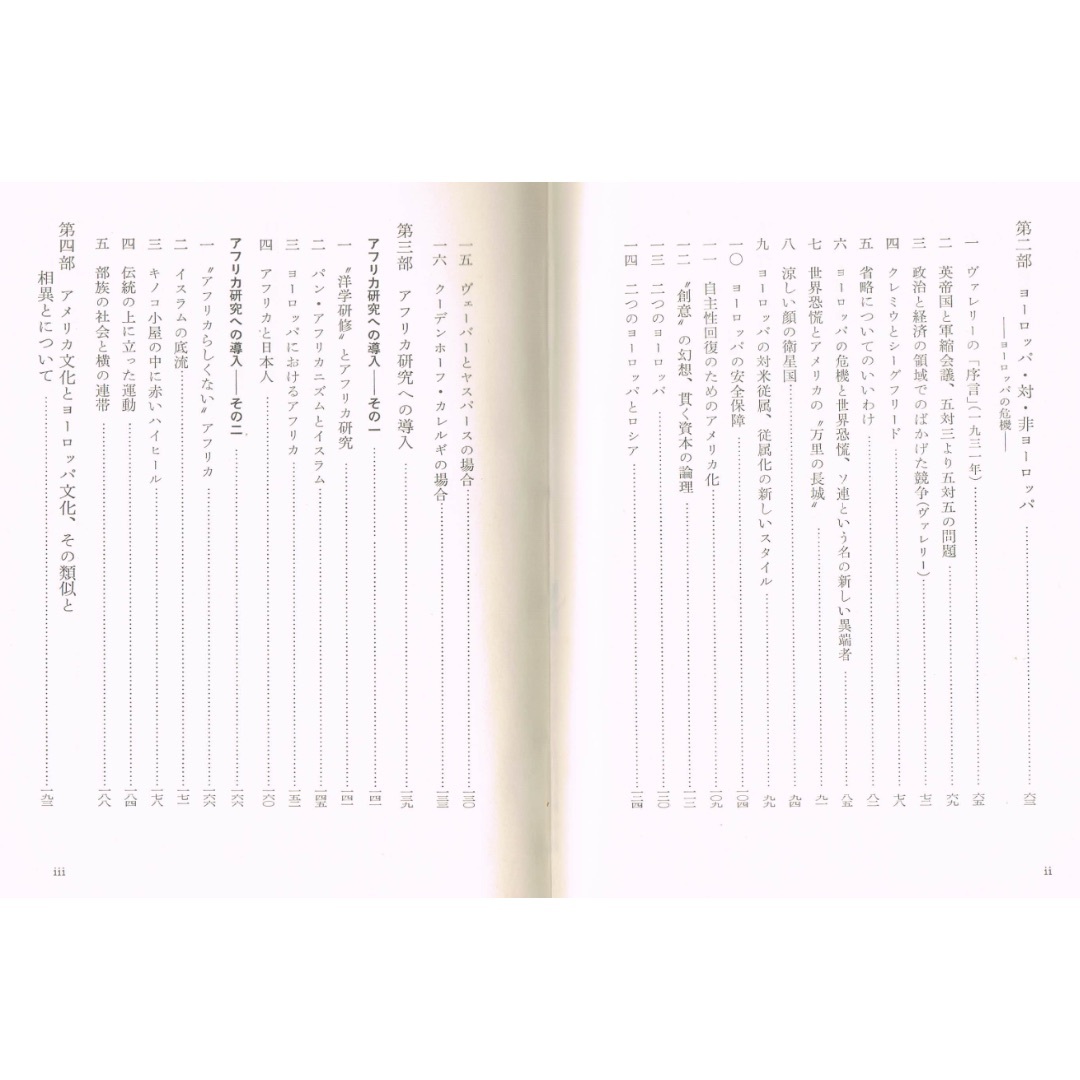 第二部 ヨーロッパ・対・非ヨーロッパ……六三
――ヨーロッパの危機――
一 ヴァレリーの「序言」(一九三一年)……六五
二 英帝国と軍縮会議、五対三より五対五の問題……六九
三 政治と経済の領域でのばかげた競争(ヴァレリー)……七二
四 クレミウとシーグフリード……七八
五 省略についてのいいわけ……八二
六 ヨーロッパの危機と世界恐慌、ソ連という名の新しい異端者……八五
七 世界恐慌とアメリカの〝万里の長城〟……九一
八 涼しい顔の衛星国……九四
九 ヨーロッパの対米従属、従属化の新しいスタイル……九九
一〇 ヨーロッパの安全保障……一〇四
一一 自主性回復のためのアメリカ化……一〇九
一二 〝創意〟の幻想、貫く資本の論理……一一二
一三 二つのヨーロッパ……一二〇
一四 二つのヨーロッパとロシア……一二四
ii
一五 ヴェーバーとヤスパースの場合……一三〇
一六 クーデンホーフ・カレルギの場合……一三三
第三部 アフリカ研究への導入……一三九
アフリカ研究への導入――その一……一四一
一 〝洋学研修〟とアフリカ研究……一四一
二 パン・アフリカニズムとイスラム……一四五
三 ヨーロッパにおけるアフリカ……一五二
四 アフリカと日本人……一六〇
アフリカ研究への導入――その二……一六六
一 〝アフリカらしくない〟アフリカ……一六六
二 イスラムの底流……一七一
三 キノコ小屋の中に赤いハイヒール……一七八
四 伝統の上に立った運動……一八四
五 部族の社会と横の連帯……一八八
第四部 アメリカ文化とヨーロッパ文化、その類似と
相異とについて……一九三
iii